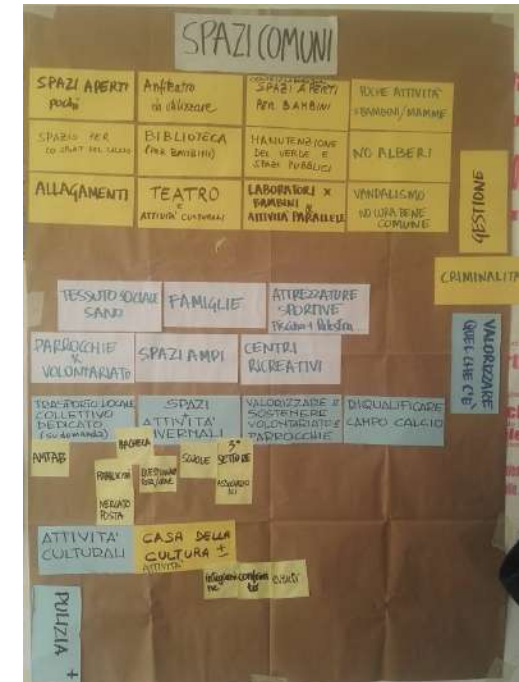 SPAZI COMUNI
SPAZI APERTI
pochi
Anfiteatro
da utilizzare
SPAZI APERTI
PER BAMBINI
POCHE ATTIVITÀ
BAMBINI/MAMME
SPAZIO PER
BIBLIOTECA
(PER BAMBINI)
MANUTENZIONE
DEL VERDE E
SPAZI PUBBLICI
NO ALBERI
ALLAGAMENTI
TEATRO
E
ATTIVITA' CULTURALI
LABORATORI X
BAMBINI
ATTIVITA' PARALLELE
VANDALISMO
NO CURA BENE
COMUNE
GESTIONE
CRIMINALITA'
TESSUTO SOCIALE
SANO
FAMIGLIE
ATTREZZATURE
SPORTIVE
Piscina + Palestra
VALORIZZARE
QUEL CHE C'È
PARROCCHIE
X
VOLONTARIATO
SPAZI AMPI
CENTRI
RICREATIVI
TRASPORTO LOCALE
COLLETTIVO
DEDICATO
(su domanda)
SPAZI
ATTIVITA'
INVERNALI
VALORIZZARE E
SOSTENERE
VOLONTARIATO E
PARROCCHIE
RIQUALIFICARE
CAMPO CALCIO
AMTAB
BACHECA
SCUOLE
3°
SETTORE
MERCATO
POSTA
ATTIVITA'
CULTURALI
CASA DELLA
CULTURA +
ATTIVITÀ
eventi
PULIZIA +